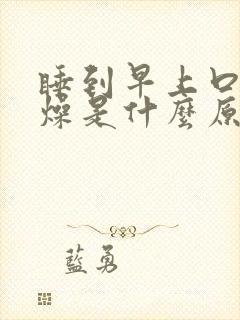 睡到早上口
燥是什麼原
藍勇